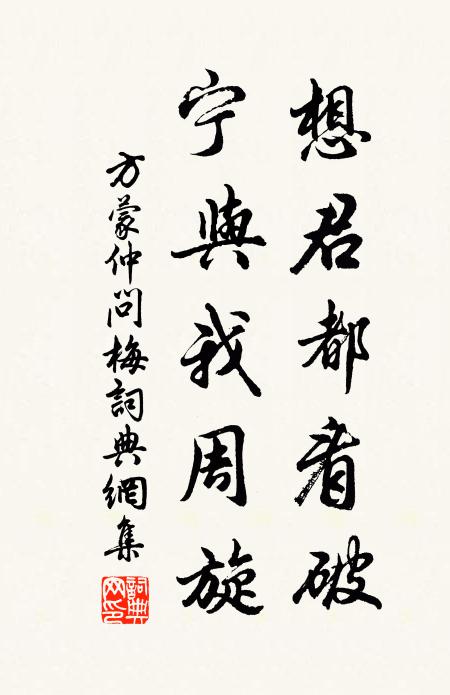 想君都看破
宁與我周旋
方蒙仲問梅詞典網集
詞典網印